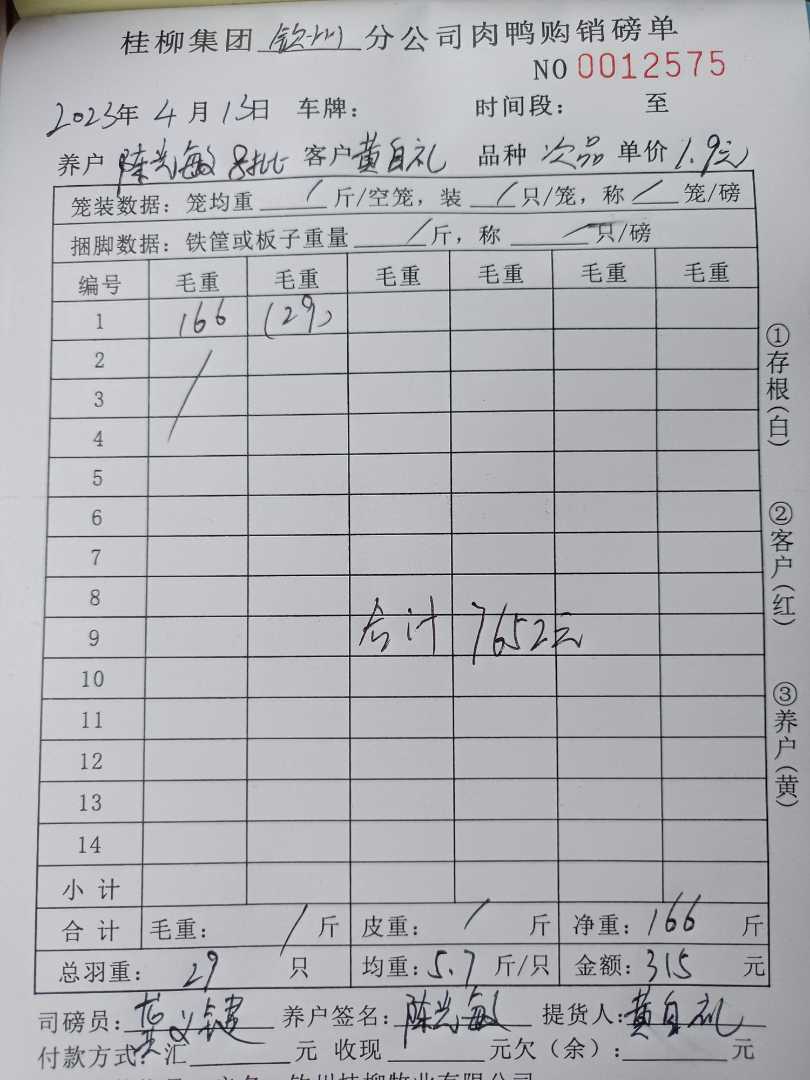 桂柳集团 钦州 分公司肉鸭购销磅单
NO 0012575
2023年 4月 13日 车牌: 时间段: 至
养户 陈光敏 8批 客户 黄自礼 品种 次品 单价 1.9元
笼装数据: 笼均重 / 斤/空笼, 装 / 只/笼, 称 / 笼/磅
捆脚数据: 铁筐或板子重量 / 斤, 称 / 只/磅
编号 毛重 毛重 毛重 毛重 毛重 毛重
1 166 (29)
2
3
4
5
6
7
8
9 合计 7652元
10
11
12
13
14
小计
合计 毛重: / 斤 皮重: / 斤 净重: 166 斤
总羽重: 29 只 均重: 5.7 斤/只 金额: 315 元
司磅员: 养户签名: 陈光敏 提货人: 黄自礼
付款方式: 汇 元 收现 元欠(余): 元
钦州桂柳牧业有限公司
①存根(白)
②客户(红)
③养户(黄)